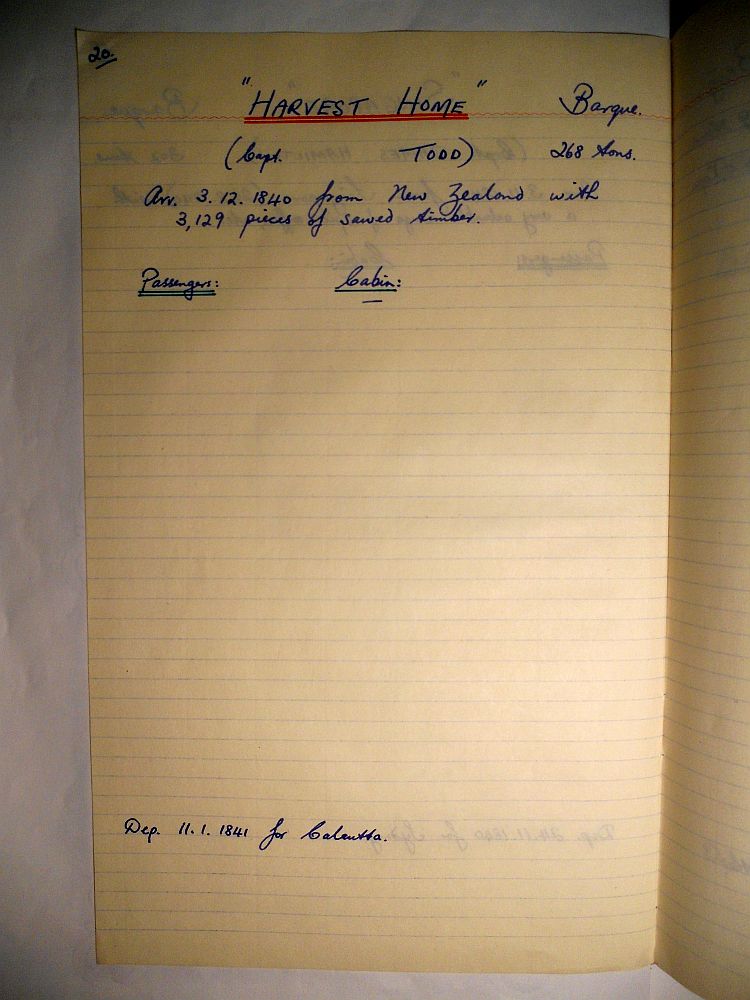 20.
"HARVEST HOME" Barque.
(Capt. TODD) 268 tons.
Arr. 3.12.1840 from New Zealand with
3,129 pieces of sawed timber.
Passengers: Cabin:
Dep. 11.1.1841 for Calcutta.